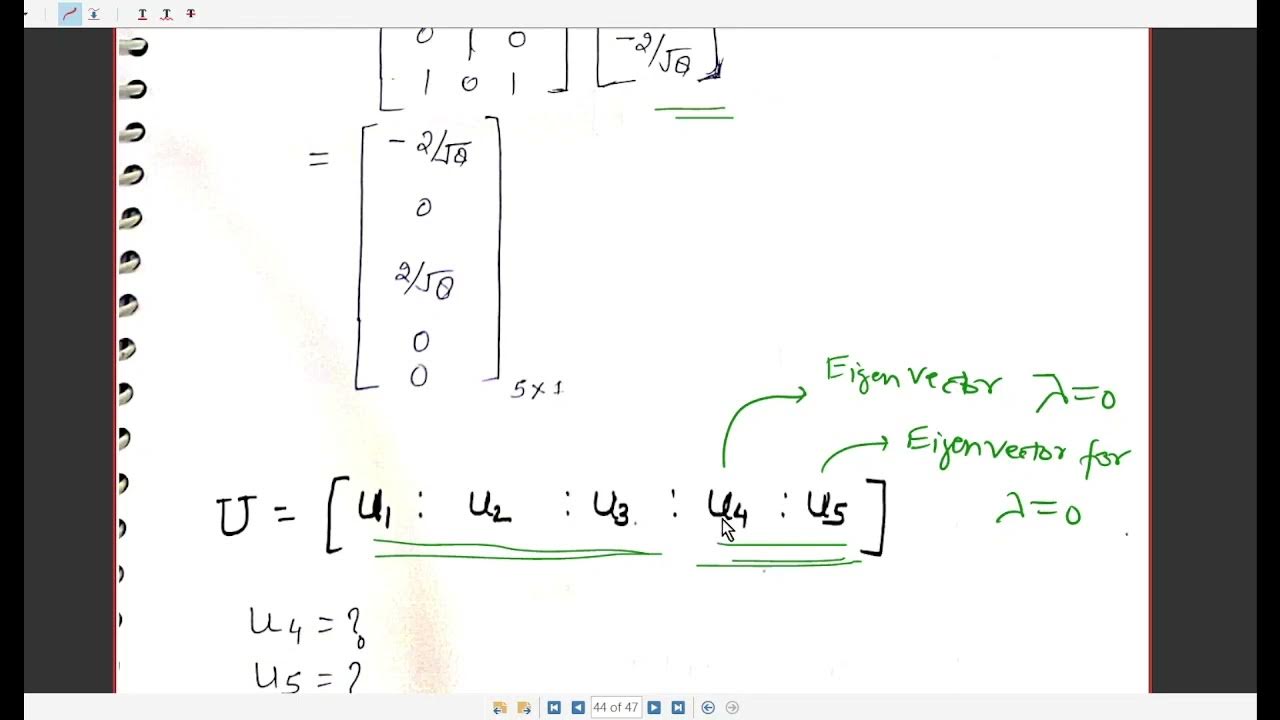 0 1 0 -2/√8
1 0 1
= -2/√8
0
2/√8
0
0
5×1
Eigenvector λ=0
Eigenvector for
λ=0
U = [ u1 : u2 : u3 : u4 : u5 ]
u4 = ?
u5 = ?
44 of 47